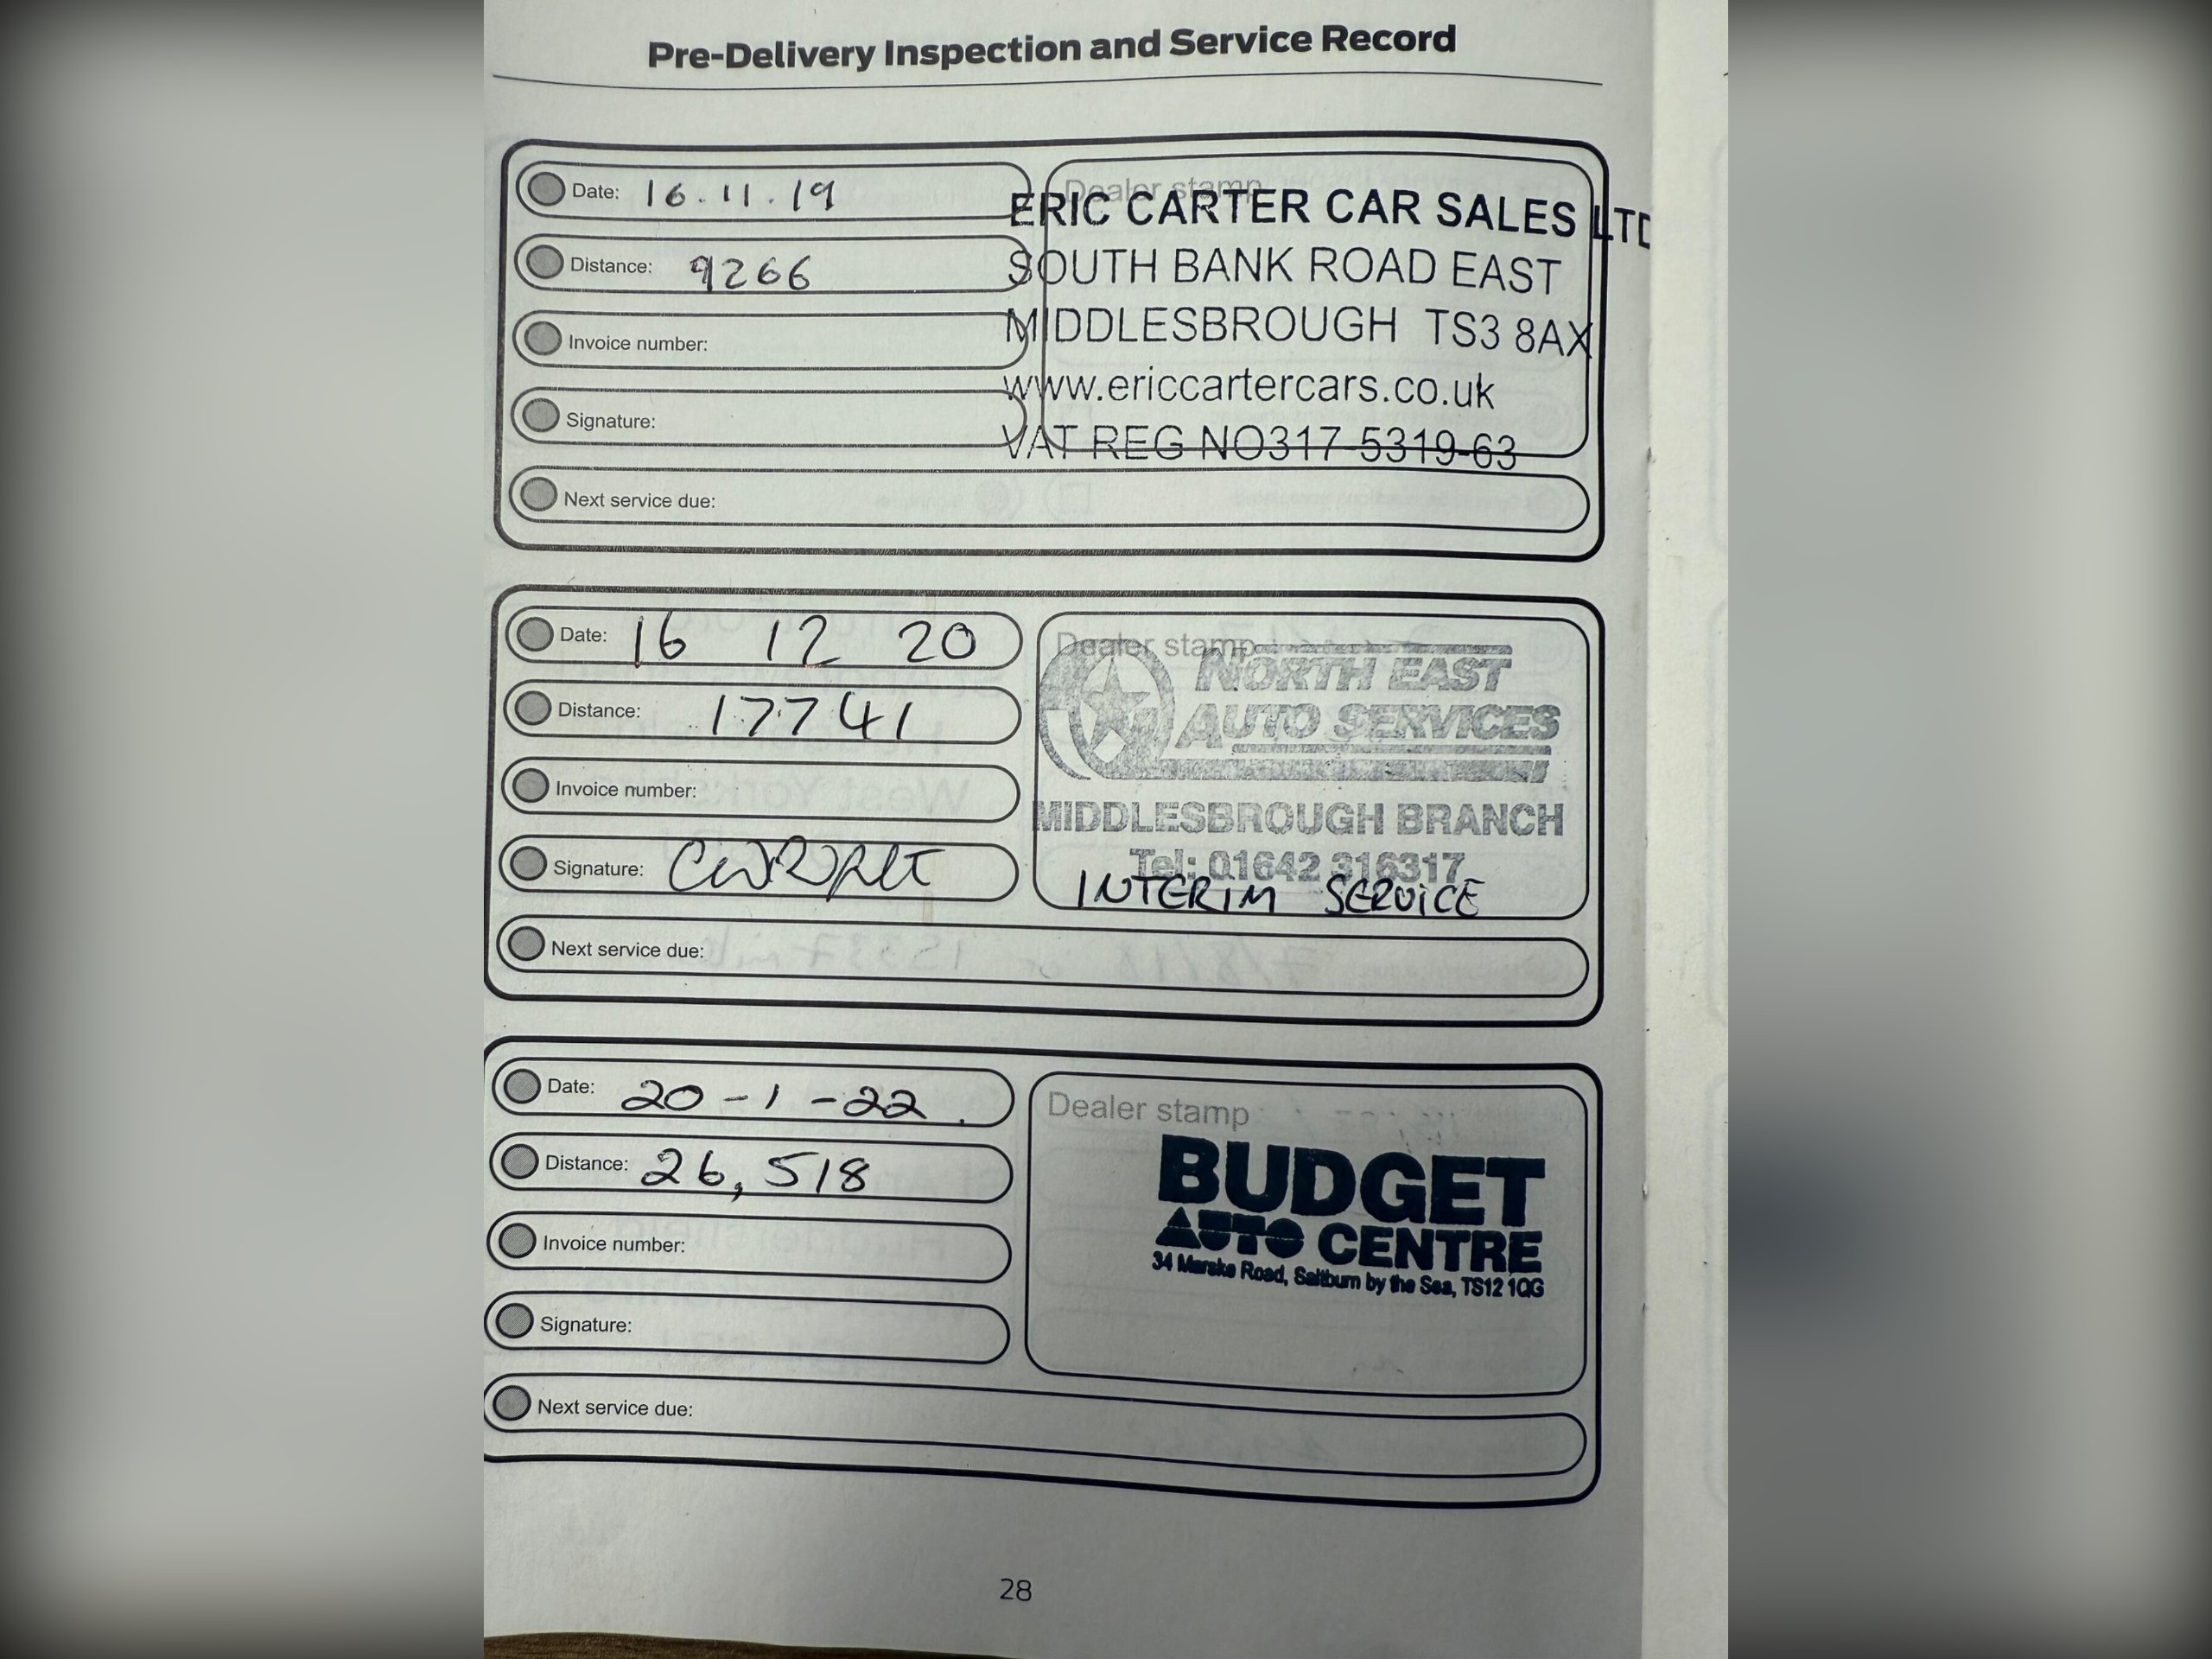 Pre-Delivery Inspection and Service Record
Date: 16.11.19
Distance: 9266
Invoice number:
Signature:
Next service due:
Dealer stamp
ERIC CARTER CAR SALES LTD
SOUTH BANK ROAD EAST
MIDDLESBROUGH TS3 8AX
www.ericcartercars.co.uk
VAT REG NO317-5319-63
Date: 16 12 20
Distance: 17741
Invoice number:
Signature:
Next service due:
Dealer stamp
NORTH EAST
AUTO SERVICES
MIDDLESBROUGH BRANCH
Tel: 01642 316317
INTERIM SERVICE
Date: 20-1-22.
Distance: 26,518
Invoice number:
Signature:
Next service due:
Dealer stamp
BUDGET
AUTO CENTRE
34 Marske Road, Saltburn by the Sea, TS12 1QG
28